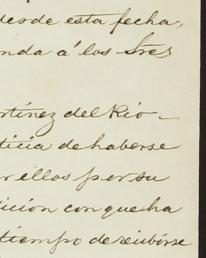 desde esta fecha,
enda á los Sres
rtinez del Rio
ticia de haberse
r ellos por su
dicion con que ha
tiempo de recibirse